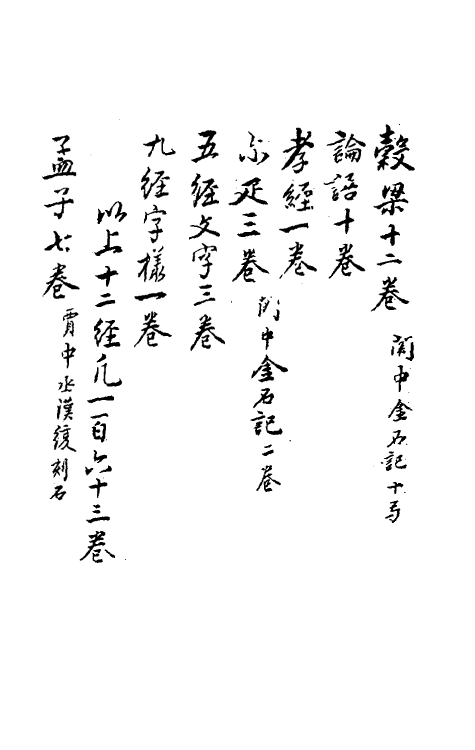 穀梁十二卷 関中金石記十㢧
論語十卷
孝經一卷
尒疋三卷 関中金石記二卷
五經文字三卷
九経字樣一卷
以上十二経凡一百六十三卷
孟子七卷 賈中丞漢復刻石